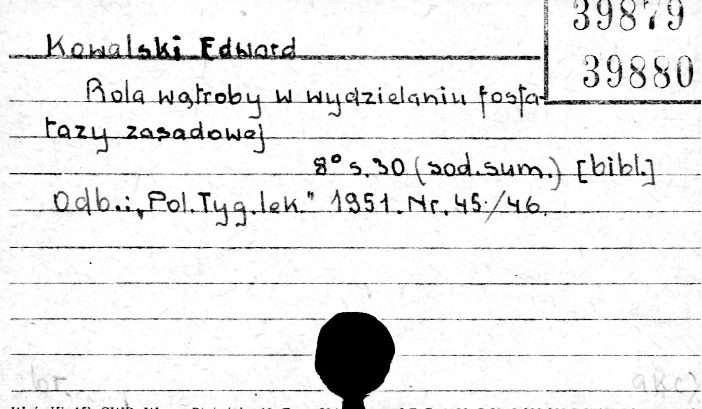 39879
39880
Kowalski Edward
Rola wątroby w wydzielaniu fosfa-
tazy zasadowej
8° s. 30 (sod. sum.) [bibl.]
Odb.: "Pol. Tyg. lek." 1951. Nr. 45./46.
br.